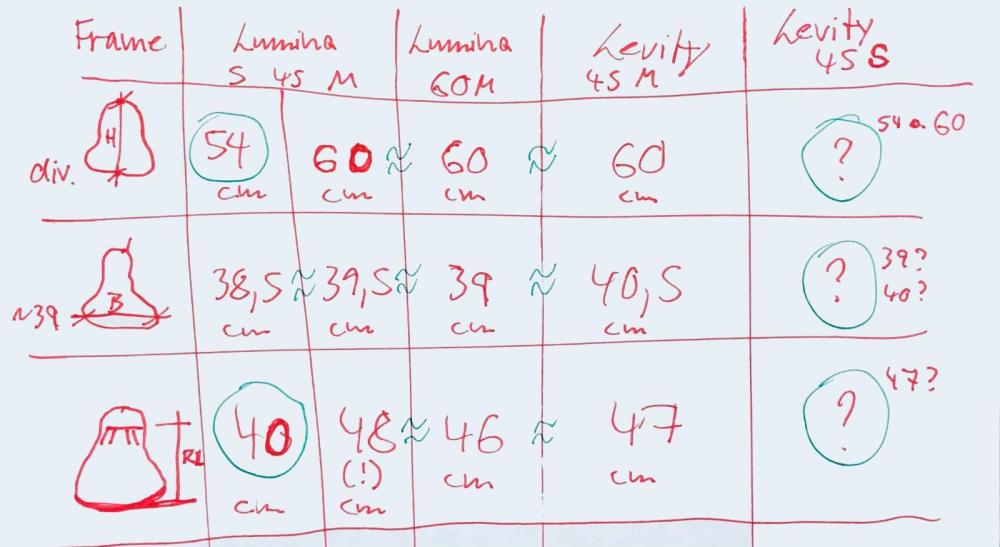 Frame Lumina Lumina Levity Levity
S 45 M 60M 45 M 45 S
H 54 60 ≈ 60 ≈ 60 ? 54 o. 60
div. cm cm cm cm
B 38,5 ≈ 39,5 ≈ 39 ≈ 40,5 ? 39?
~39 cm cm cm cm 40?
RL 40 48 ≈ 46 ≈ 47 ? 47?
(!)
cm cm cm cm